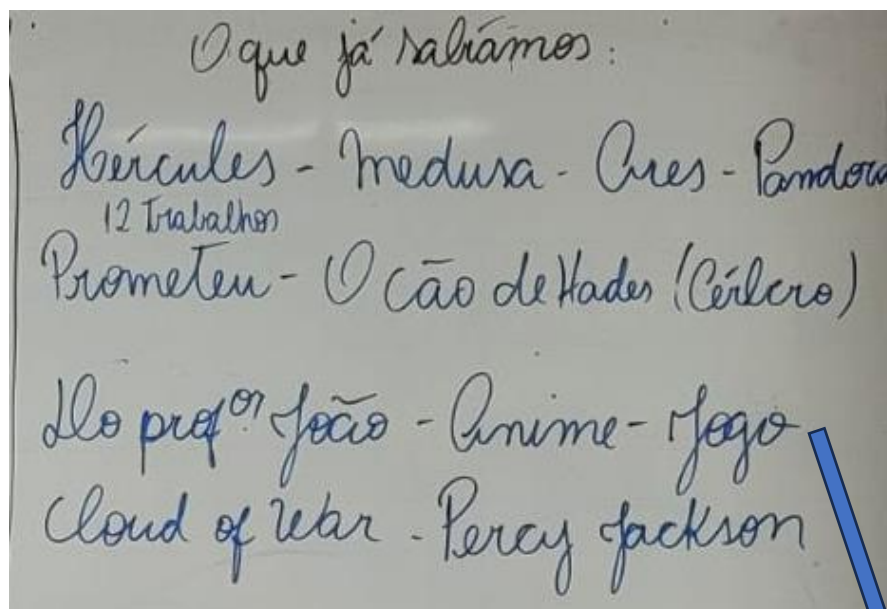 O que já sabíamos:
Hércules - Medusa - Ares - Pandora
12 Trabalhos
Prometeu - O cão de Hades (Cérbero)
Do profºr João - Anime - Jogo
Cloud of War - Percy Jackson